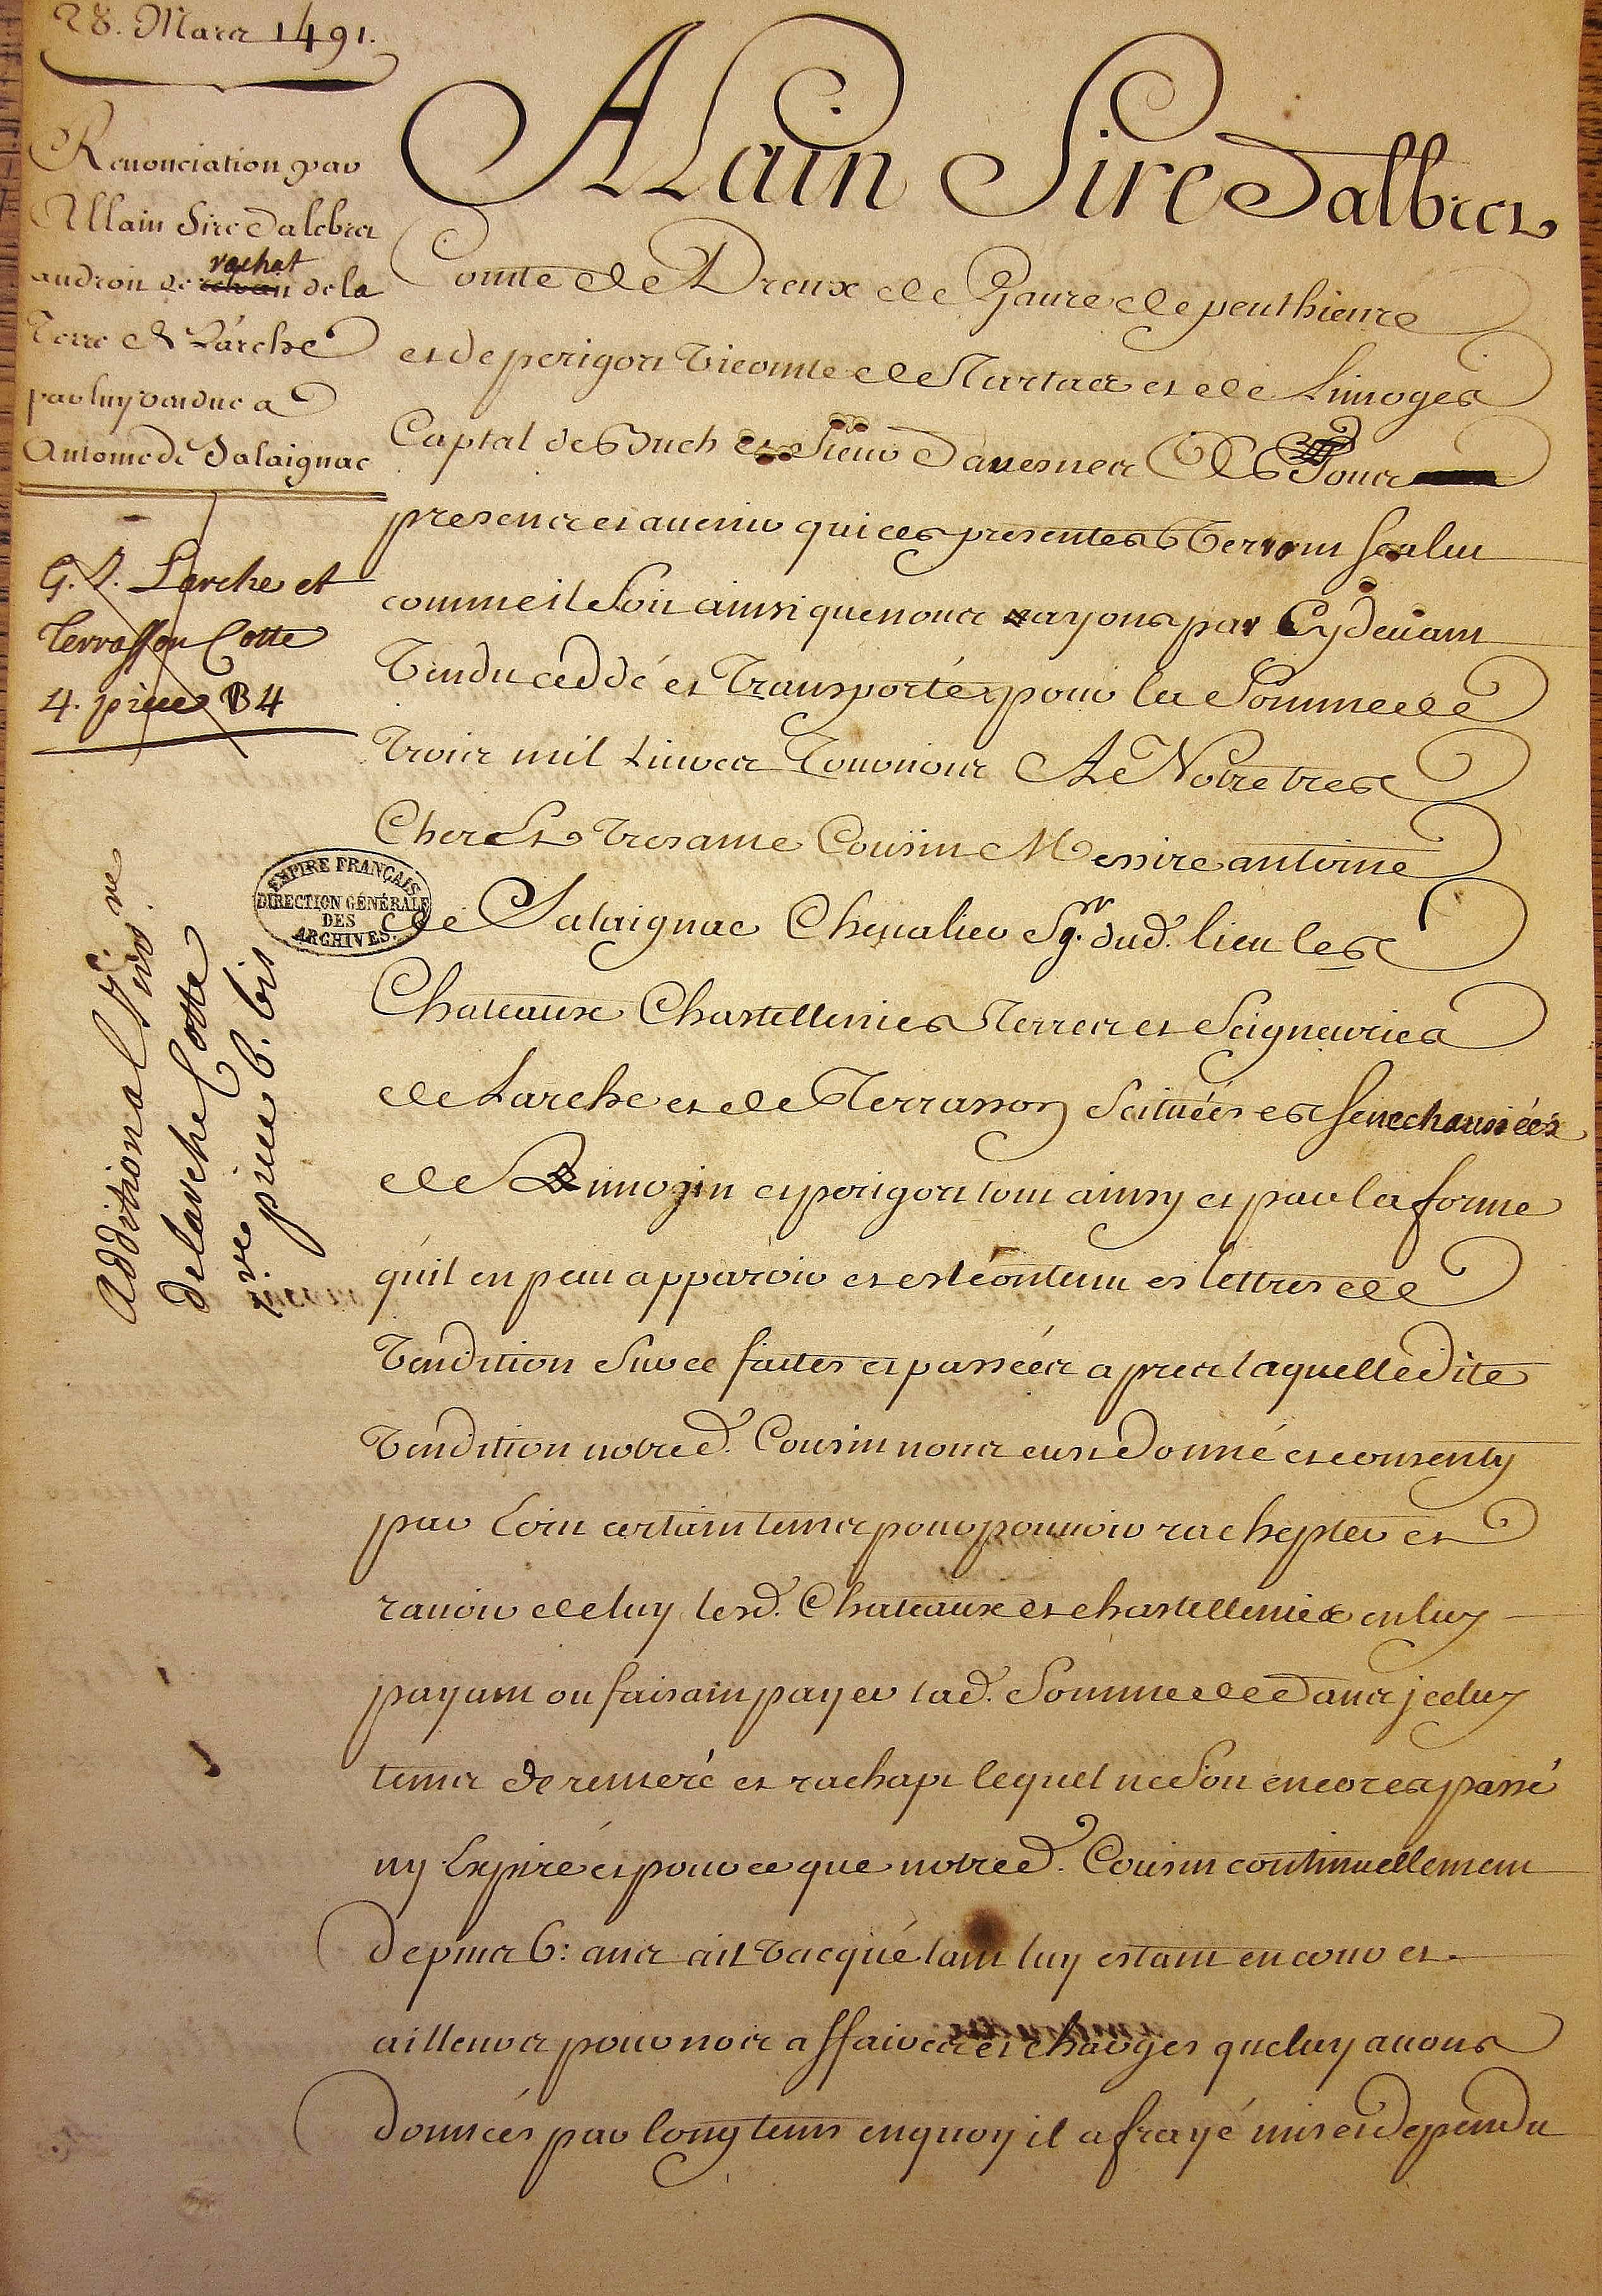 28. Mars 1491.
Renonciation par
Allain Sire Dalebret
au droit de rachat de la
Terre de Larche
par luy vendue a
Antoine de Salaignac
G. L. Larche et
Terrasson Cotte
4. piece B4
Additional
de larche Cotte
piece 6. bis
EMPIRE FRANÇAIS
DIRECTION GÉNÉRALE
DES
ARCHIVES
ALain Sire Dalbret
Comte de Dreux de Gaure de penthieure
et de perigort Vicomte de Tartas et de Limoges
Captal de Buch et Sieur Dauesnes A Tous
presens et auenir qui ces presentes Verront salut
comme il Soit ainsi que nous ayons par Cy deuant
Vendu ceddé et Transporté pour la Somme de
Trois mil Liures Tournois A Notre tres
Cher Et Tres ame Cousin Messire antoine
de Salaignac Cheualier Sgr. dud. lieu les
Chateaux Chastellenies Terres et Seigneuries
de Larche et de Terrasson Scituées es senechaussées
de Limozin et perigort tout ainsy et par la forme
qu'il en peut apparoir et est contenu es lettres de
Vendition Sur ce faites et passées apres laquelle dite
Vendition notred. Cousin nous eust Donné et consenty
par Loin certain tems pour pouuoir rachepter et
rauoir de luy lesd. Chateaux et chastellenies en luy
payant ou faisant payer lad. Somme de Dans jceluy
tems de remeré et rachapt lequel ne Soit encores passé
ny Expiré et pour ce que notred. Cousin continuellement
depuis 6: ans ait Vacqué tant luy estant en cour et
ailleurs pour nos affaires et charges que luy auons
données par long tems en quoy il a frayé mis et dependu